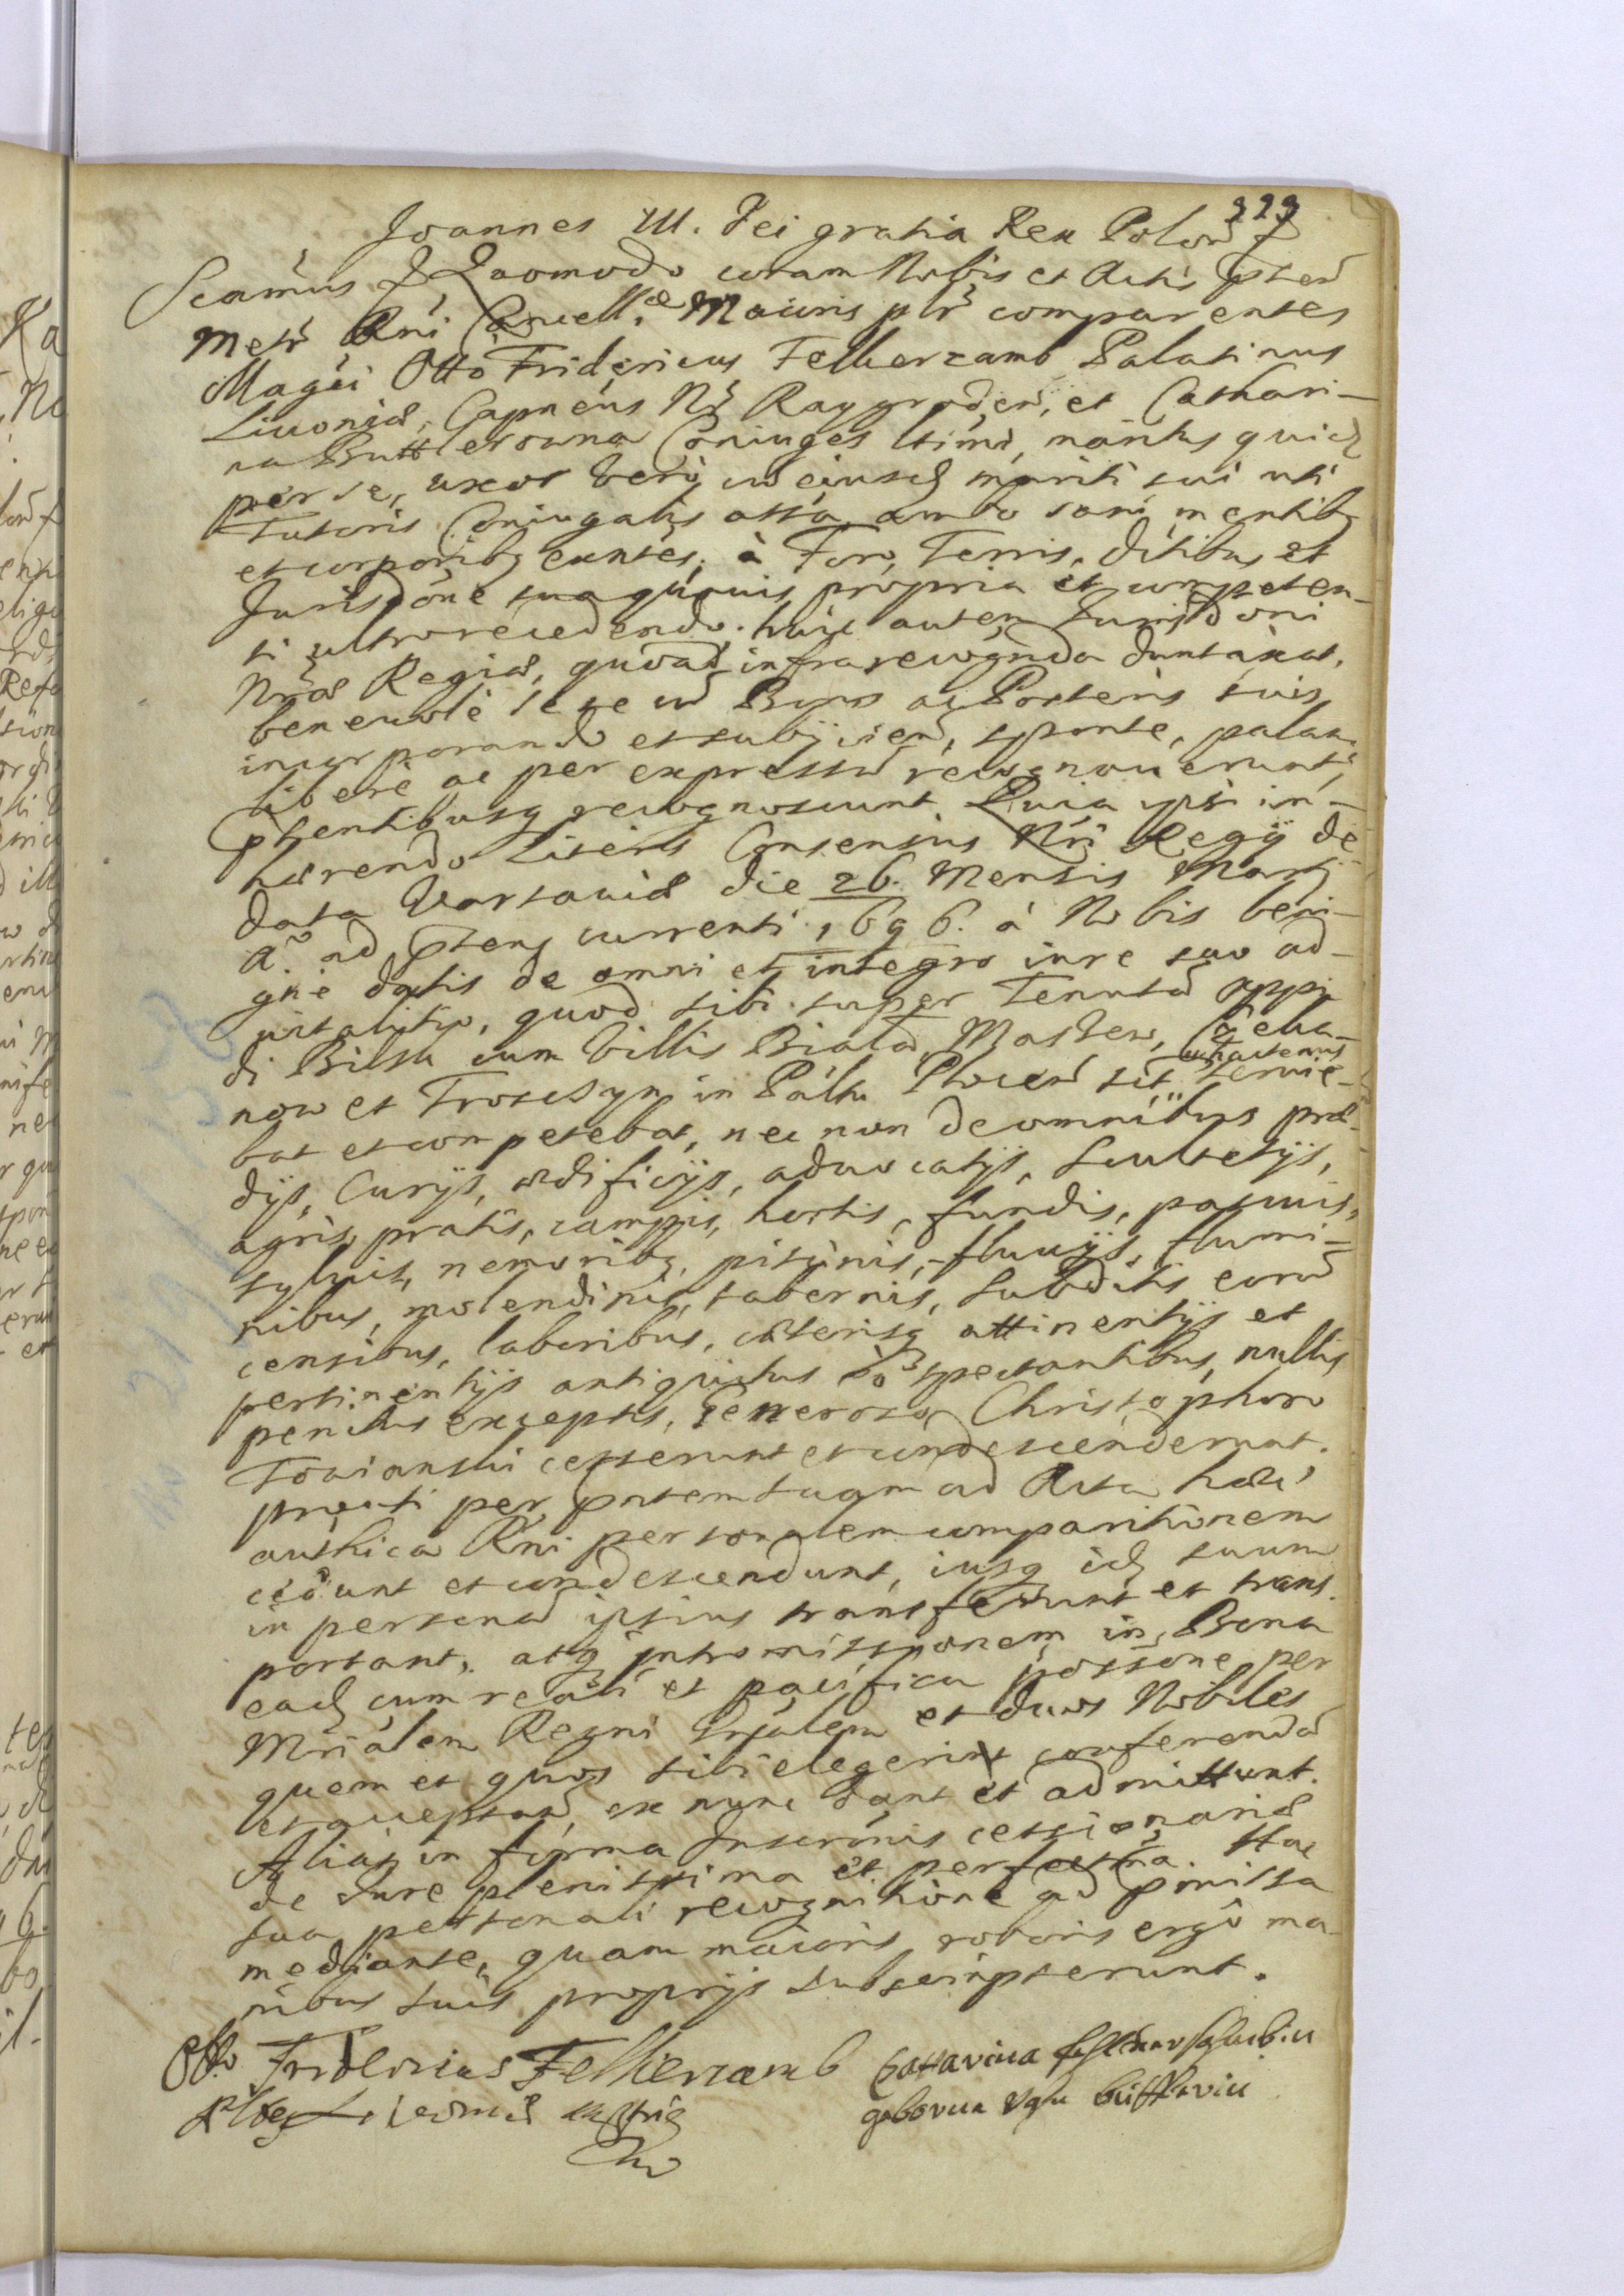 323
Joannes III. Dei gratia Rex Polon̄ &
Scām̄us & Quomodo coram Nobis et Actis p̄sten̄
Metr̄ Rn̄i Cancell.æ Maioris plr̄ comparentes
Magci Otto Fridericus Felkerzamb Palatinus
Livoniæ, Capneus Nr̄ Raygroden̄, et Cathari-
na Buttlerowna Coniuges ltimi, maritus quid
per se, uxor vero cū eiusd mariti sui uti
Tutoris Coniugalis assā, ambo sani mentibq
et corporibq exntes, à Foro, Terris, ditibus et
Jurisdōne sua quavis propria et competen-
ti ultro recedendo, huic autem Jurisdōni
Nr̄æ Regiæ, quoad infra recogn̄da duntaxat,
benevole se se cū Bonis ac Posteris suis
incorporando et subijciend, sponte, palam
libere ac per expressū recognoverunt,
p̄sentibusq recognoscunt. Quia ipsi in-
hærendo Literis Consensus Nr̄i Regij de
data Varsaviæ die 26. Mensis Martij
Aº ad p̄sens currenti 1696. à Nobis beni-
gne datis de omni et integro iure suo ad-
vitalitio, quod sibi super Tenutā oppi-
di Bilsk cum villis Biała, Maszew,
now et Troszyn in Paltu Plocen̄ sit hactenus servie-
bat et competebat, nec non de omnibus præ-
dijs, Curijs, ædificijs, advocatijs, Scultetijs,
agris, pratis, campis, hortis, fundis, pascuis,
sylvis, nemoribq, piscinis, fluvijs, flumi-
nibus, molendinis, tabernis, Subditis eorū
censibus, laboribus, cæterisq attinentijs et
pertinentijs antiquitus eo spectantibus, nullis
penitus exceptis, Generoso Christophoro
Towianski cesserunt et condescenderunt.
prouti per p̄ntem suam ad Acta hæc
authica Rn̄i personalem comparitionem
cedunt et condescendunt, iusq id suum
in personā ipsius transferunt et trans
portant, atq intromissionem in Bona
ead cum reali et pacifica possōne per
Mriālem Regni Gn̄alem et duos Nobiles
quem et quos sibi elegerint conferendā
et acceptan̄, ex nunc dant et admittunt.
Alias in forma Inscr̄onis cessionariæ
de Jure plenissima et perfectᵐᵃ. Hac
sua personali recognitione ad p̄missa
mediante, quam maioris roboris ergô ma-
nibus suis proprijs subscripserunt.
Otto Fridericus Felkerzamb
Cattarina
geborna